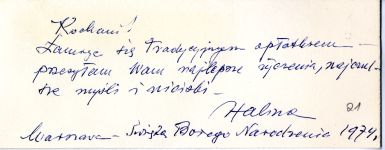 Kochani!
Łamiąc się tradycyjnym opłatkiem —
przesyłam Wam najlepsze życzenia, najczul-
sze myśli i
Halina
21
Warszawa - Święta Bożego Narodzenia 1974,